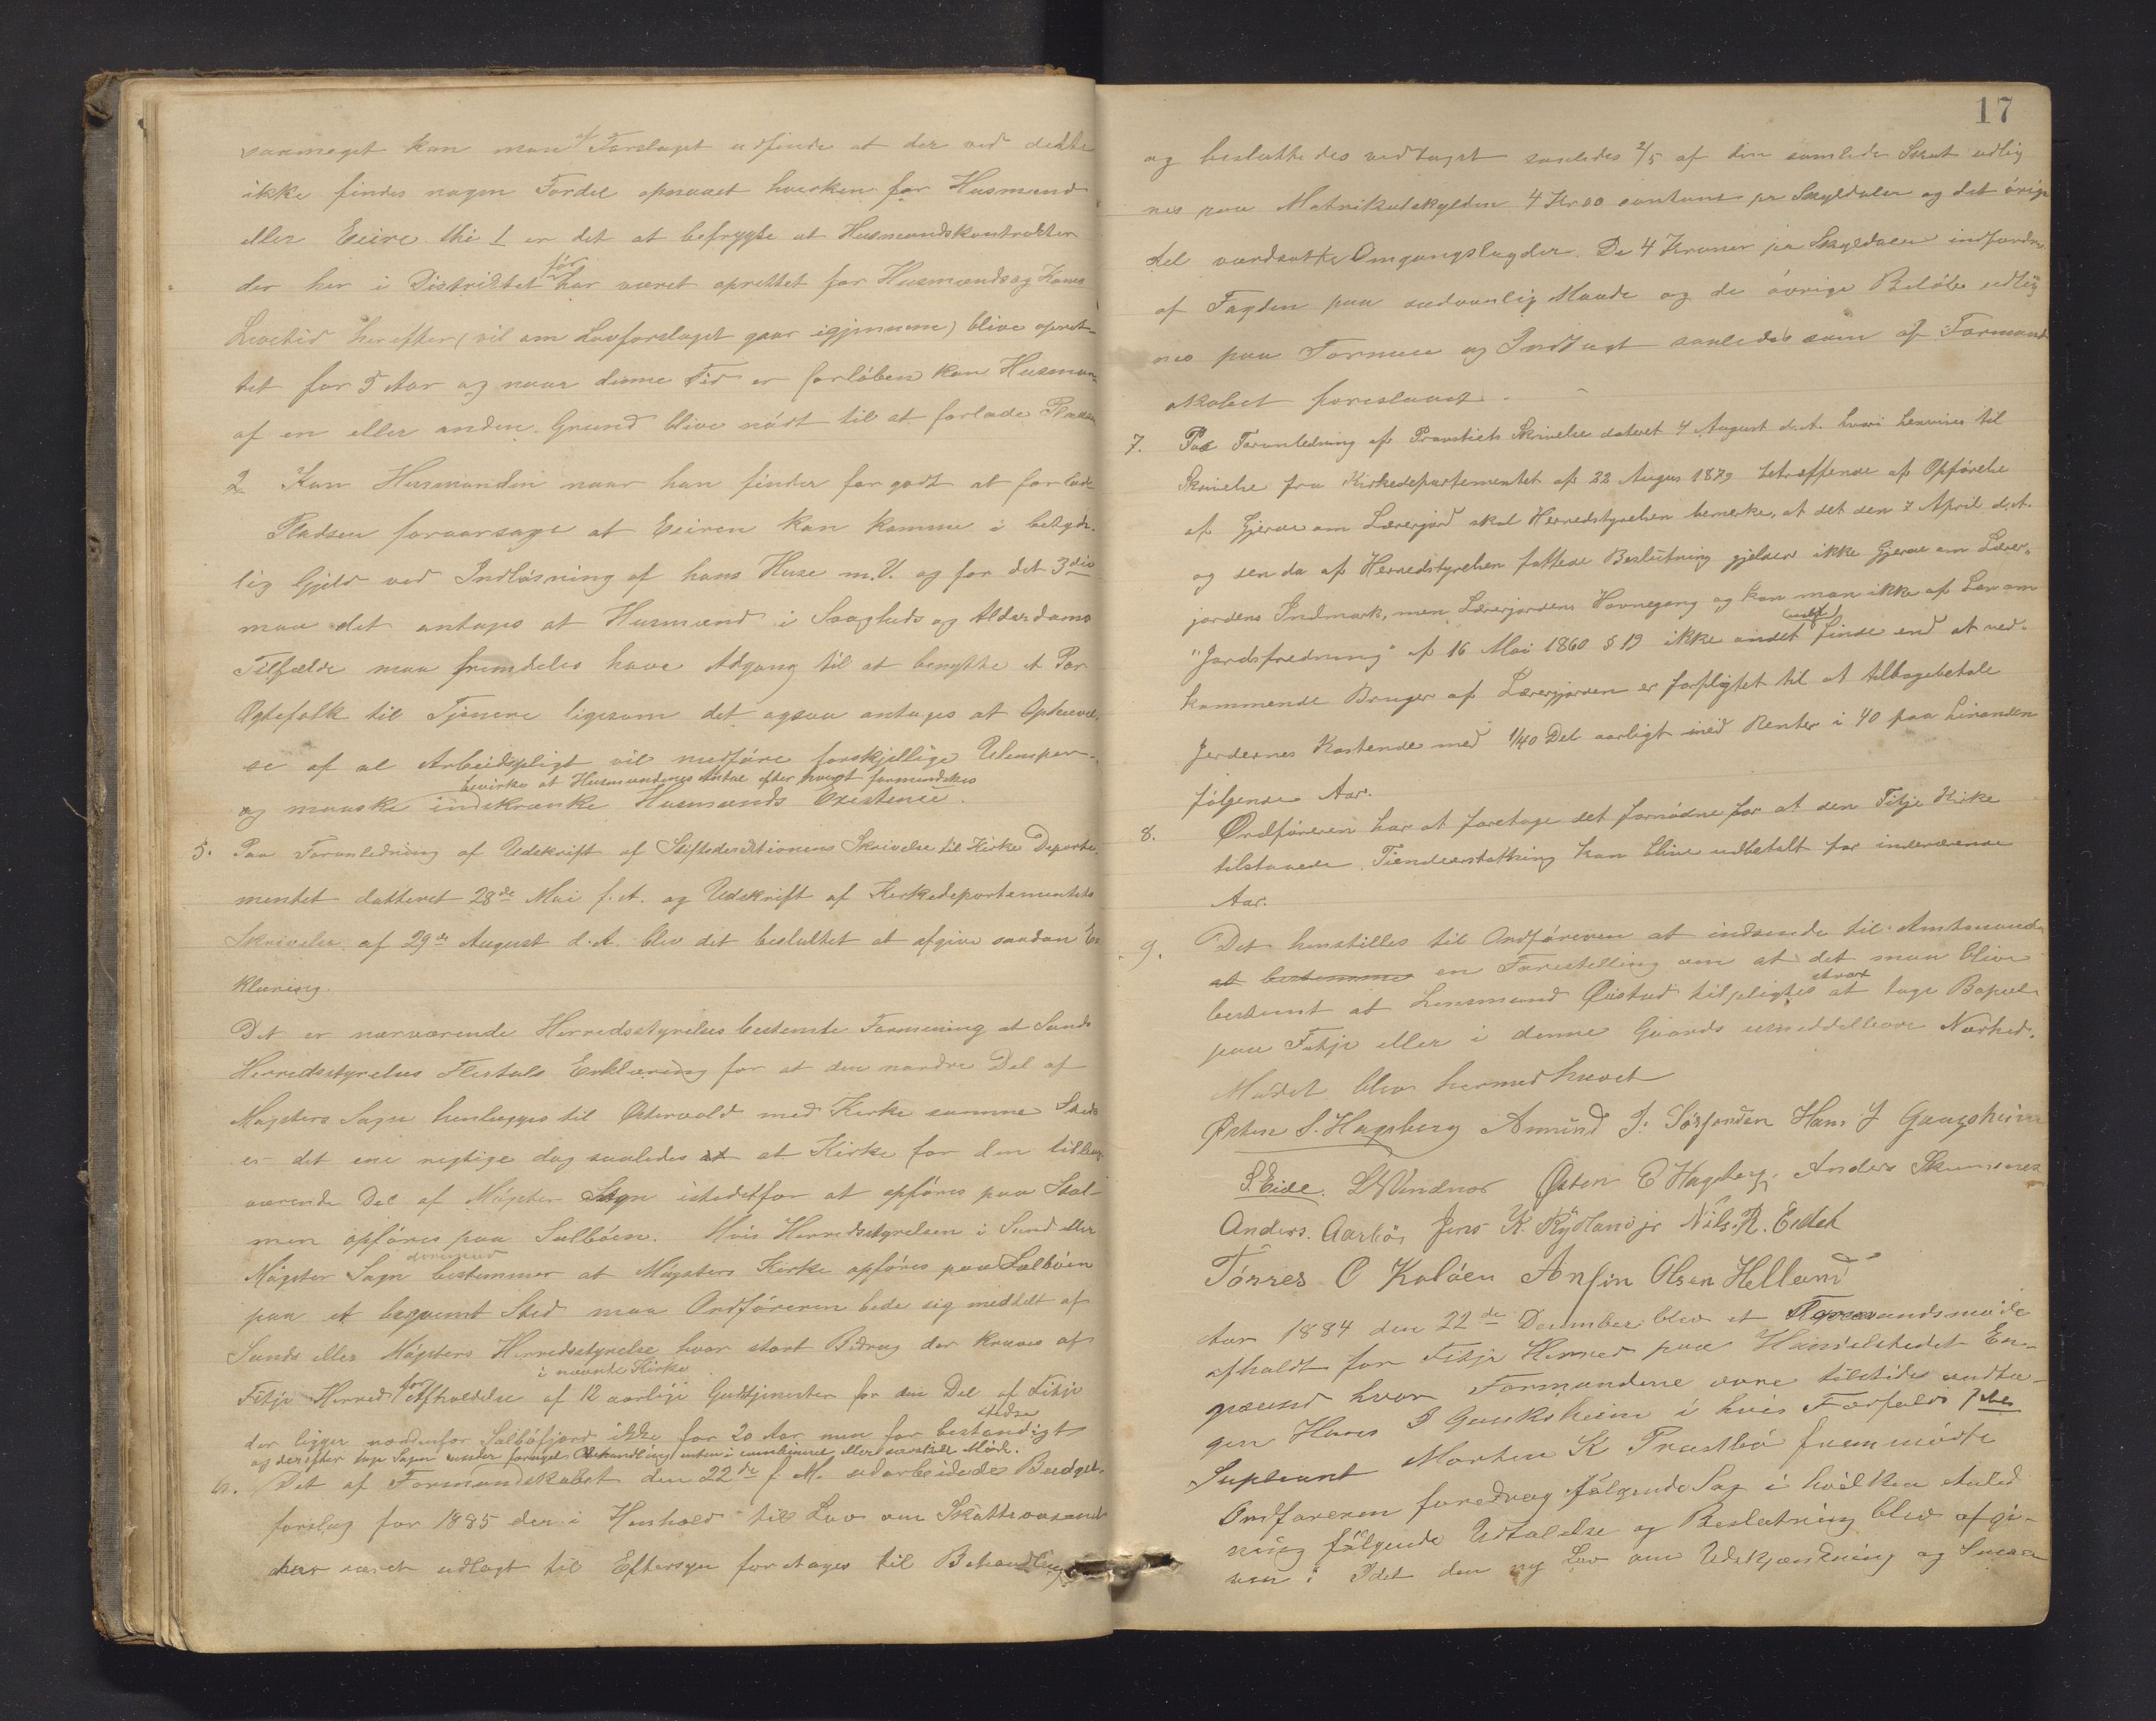 saameget kan man af Forslaget udfinde at der ved dette
ikke findes nogen Fordel opnaaet hverken for Husmænd
eller Eiere thi 1 er det at befrygte at Husmandskontrakter
der her i Distriktet før har været oprettet for Husmands og Kones
Levetid herefter (vil om Lovforslaget gaar igjennem) blive opret-
tet for 5 Aar og naar denne Tid er forløben kan Husman
af en eller anden Grund blive nødt til at forlade Pladsen
2 Kan Husmanden naar han finder for godt at forlade
Pladsen foraarsage at Eieren kan komme i betyde-
lig Gjeld ved Indløsning af hans Huse m.V. og for det 3die
maa det antages at Husmænd i Svagheds og Alderdoms
Tilfælde maa fremdeles have Adgang til at benytte et Par
Ægtefolk til Tjenere ligesom det ogsaa antages at Ophævel-
se af al Arbeidspligt vil medføre forskjellige Ulemper
bevirke at Husmændenes Antal efter hvert formindskes
og maaske indskrænke Husmands Existence.
5. Paa Foranledning af Udskrift af Stiftsdirektionens Skrivelse til Kirke Departe-
mentet datteret 28de Mai f. A. og Udskrift af Kirkedepartementets
Skrivelse af 29de August d. A. blev det besluttet at afgive saadan Er
klæring.
Det er nærværende Herredsstyrelses bestemte Formening at Sunds
Herredsstyrelses Flertals Erklæring for at den nordre Del af
Møgsters Sogn henlægges til Østervold med Kirke samme Sted
er det ene rigtige dog saaledes at at Kirke for den tilbage
værende Del af Møgster Sogn istedetfor at opføres paa Stol-
men opføres paa Selbøen. Hvis Herredsstyrelsen i Sund eller
Møgster Sogn bestemmer at Møgsters Kirke opføres paa Selbøen
paa et beqvemt Sted maa Ordføreren bede sig meddelt af
Sunds eller Møgsters Herredsstyrelse hvor stort Bidrag der kræves af
i nævnte Kirke
Fitje Herred for Afholdelse af 12 aarlige Gudstjenester for den Del af Fitje
stedse
der ligger nordenfor Selbøfjord ikke for 20 Aar men for bestandigt
og derefter tage Sagen under fornyet Behandling enten i kombineret eller særskilt Møde.
6. Det af Formandskabet den 22de f. M. udarbeidede Budget-
forslag for 1885 der i Henhold til Lov om Skattevæsenet
har været udlagt til Eftersyn foretages til Behandling
17
og besluttedes vedtaget saaledes 2/5 af den samlede Skat udlig
nes paa Matrikulskylden 4 Kr 00 contant pr Skylddaler og det øvrige
del værdsatte Omgangslægder. De 4 Kroner pr Skylddaler indfordres
af Fogden paa sædvanlig Maade og de øvrige Beløb udlig
nes paa Formue og Indtægt saaledes som af Formand
skabet foreslaaet.
7. Paa Foranledning af Provstiets Skrivelse dateret 4 August d. A. hvori henvises til
Skrivelse fra Kirkedepartementet af 22 Augus 1879 betræffende af Opførelse
af Gjerde om Lærerjord skal Herredstyrelsen bemerke, at det den 7 April d. A.
og den da af Herredstyrelsen fattede Beslutning gjelder ikke Gjerde om Lærer-
jordens Indmark, men Lærerjordens Havnegang og kan man ikke af Lov om
"Jordsfredning" af 16 Mai 1860 § 19 ikke andet finde end at ved-
kommende Bruger af Lærerjorden er forpligtet til at tilbagebetale
Jerdernes Kostende med 1/40 Del aarligt med Renter i 40 paa hinanden
følgende Aar.
8. Ordføreren har at foretage det fornødne for at den Fitje Kirke
tilstaaede Tiendeerstatning kan blive udbetalt for indeværende
Aar.
9. Det henstilles til Ordføreren at indsende til Amtmanden
at bestemme en Forestilling om at det maa blive
strax
bestemt at Lensmand Øistad tilpligtes at tage Bopæl
paa Fitje eller i denne Gaards umiddelbare Nærhed.
Mødet blev hermed hævet
Østen S. Hageberg Amund J. Sørfonden Hans J Gaugsheim
S. Eide. Østen E Hageberg. Anders Skumsnes
Anders. Aarbø, Jens K. Rydland jr Nils. R. Eidet
Tørres O Kaløen Anfin Olsen Helland
Aar 1884 den 22de December blev et Formandsmøde
afholdt for Fitje Herred paa Handelstedet En-
gesund hvor Formændene vare tilstede undta-
gen Hans J Gauksheim i hvis Forfald
Supleant Morten K Prestbø fremmødte
Ordføreren foredrog følgende Sag i hvilken Anled
ning følgende Udtalelse og Beslutning blev afgi-
ven: Idet den ny Lov om Udskjænkning og